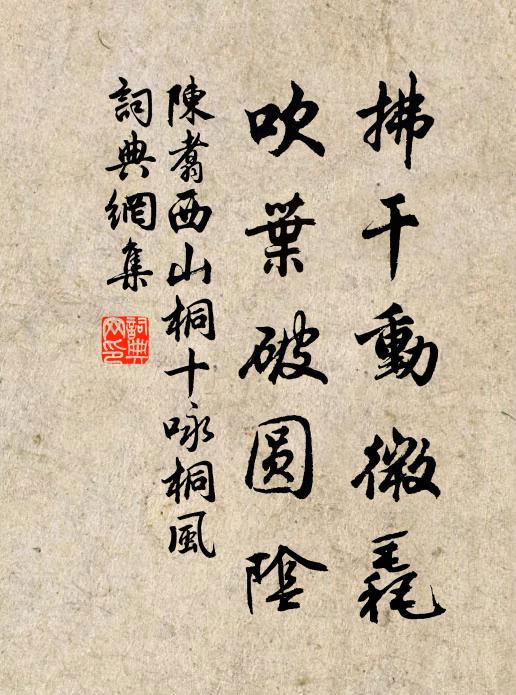 拂干動微毳
吹葉破圓陰
陳翥西山桐十咏桐風
詞典網集
詞典網印